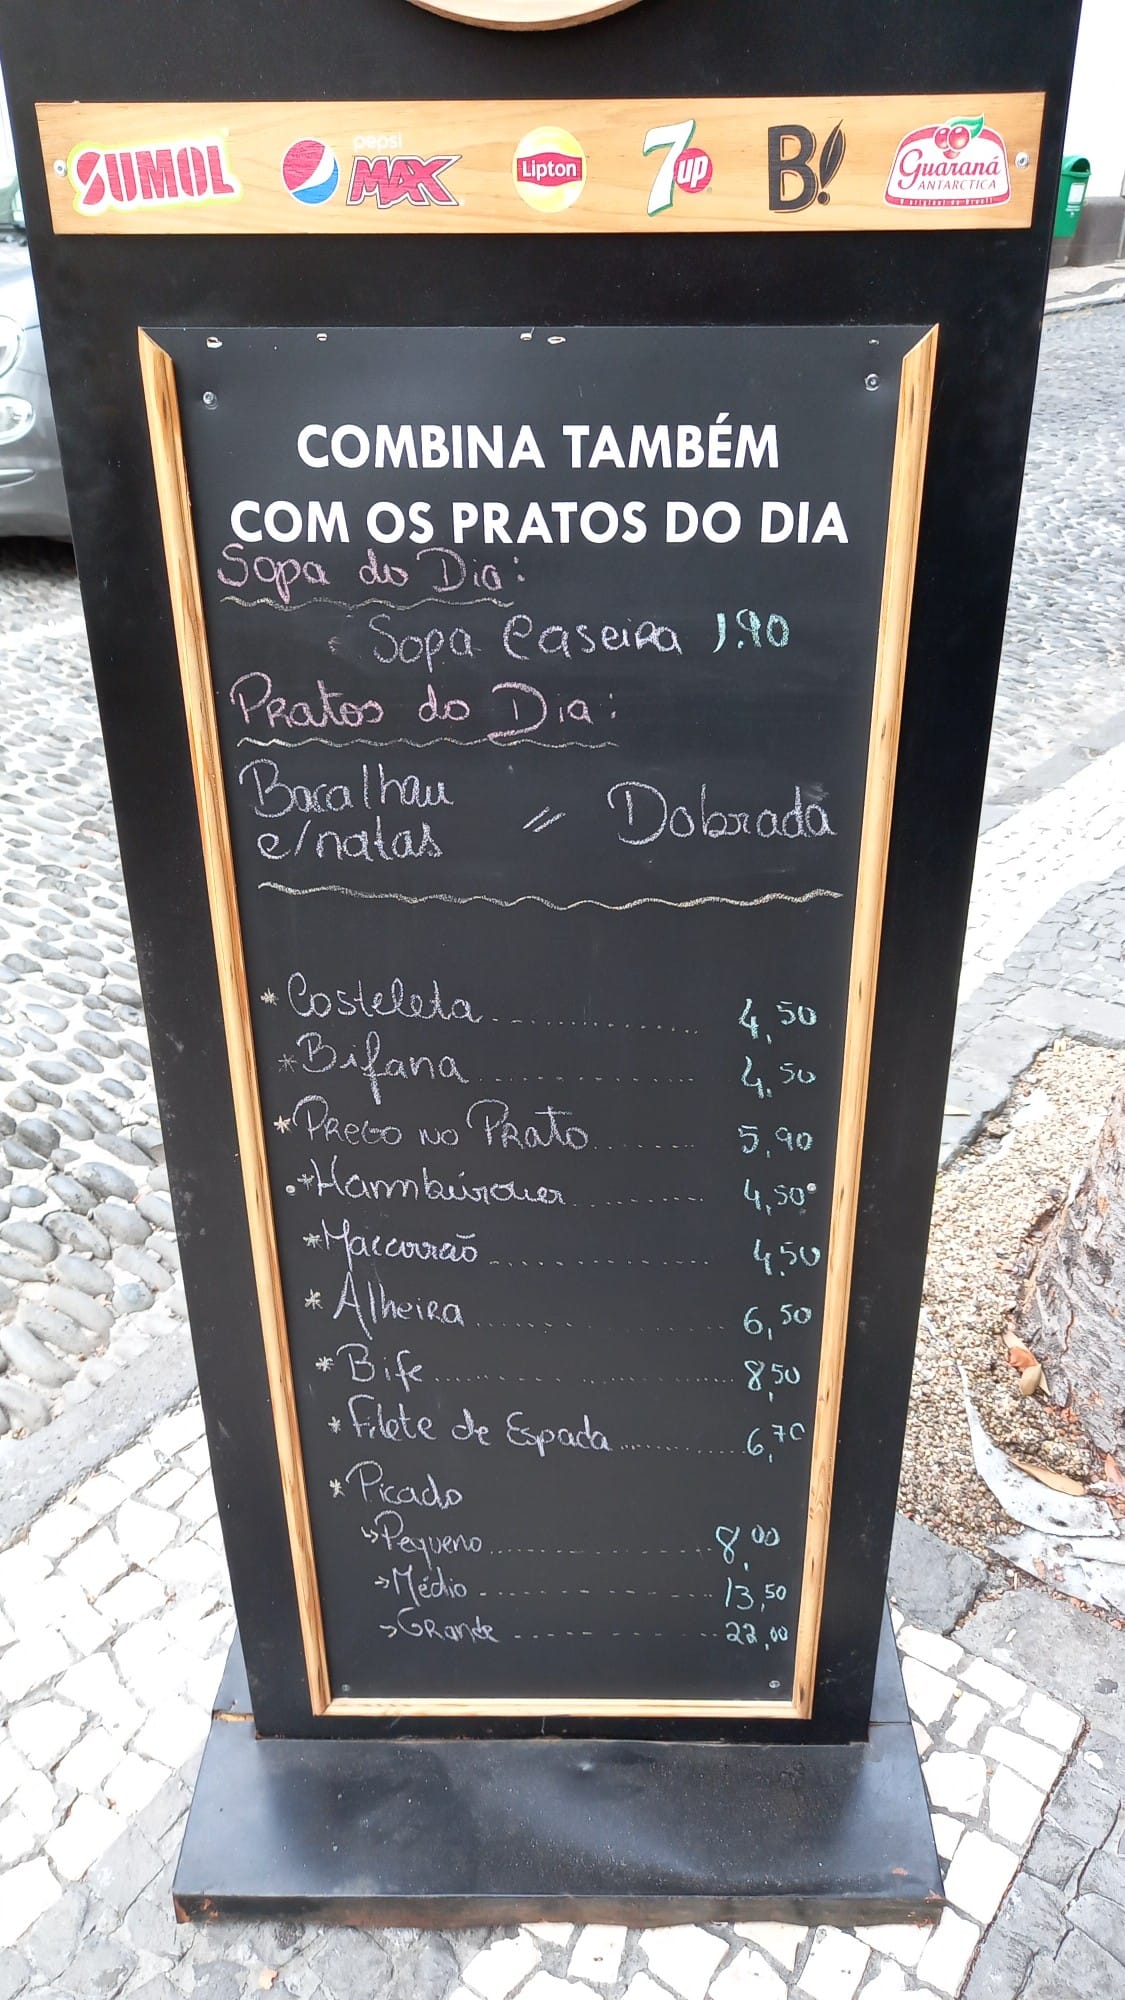 SUMOL pepsi MAX Lipton 7up B! Guaraná ANTARCTICA O original do Brasil
COMBINA TAMBÉM
COM OS PRATOS DO DIA
Sopa do Dia:
Sopa Caseira 1.90
Pratos do Dia:
Bacalhau
c/natas // Dobrada
* Costeleta 4,50
* Bifana 4,50
* Prego no Prato 5,90
* Hambúrguer 4,50
* Maccarrão 4,50
* Alheira 6,50
* Bife 8,50
* Filete de Espada 6,70
* Picado
↳ Pequeno 8,00
→ Médio 13,50
→ Grande 22,00